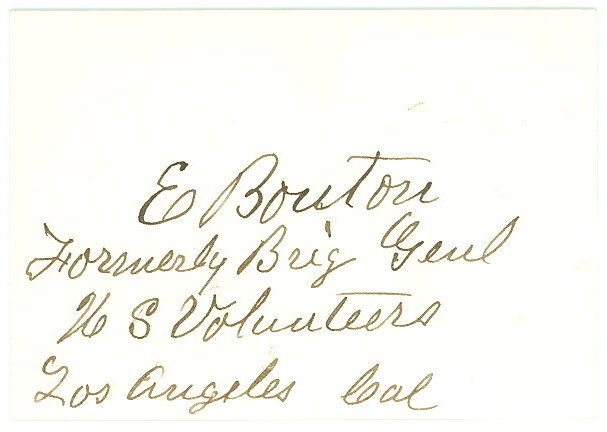 E Bouton
Formerly Brig Genl
U S Volunteers
Los Angeles Cal